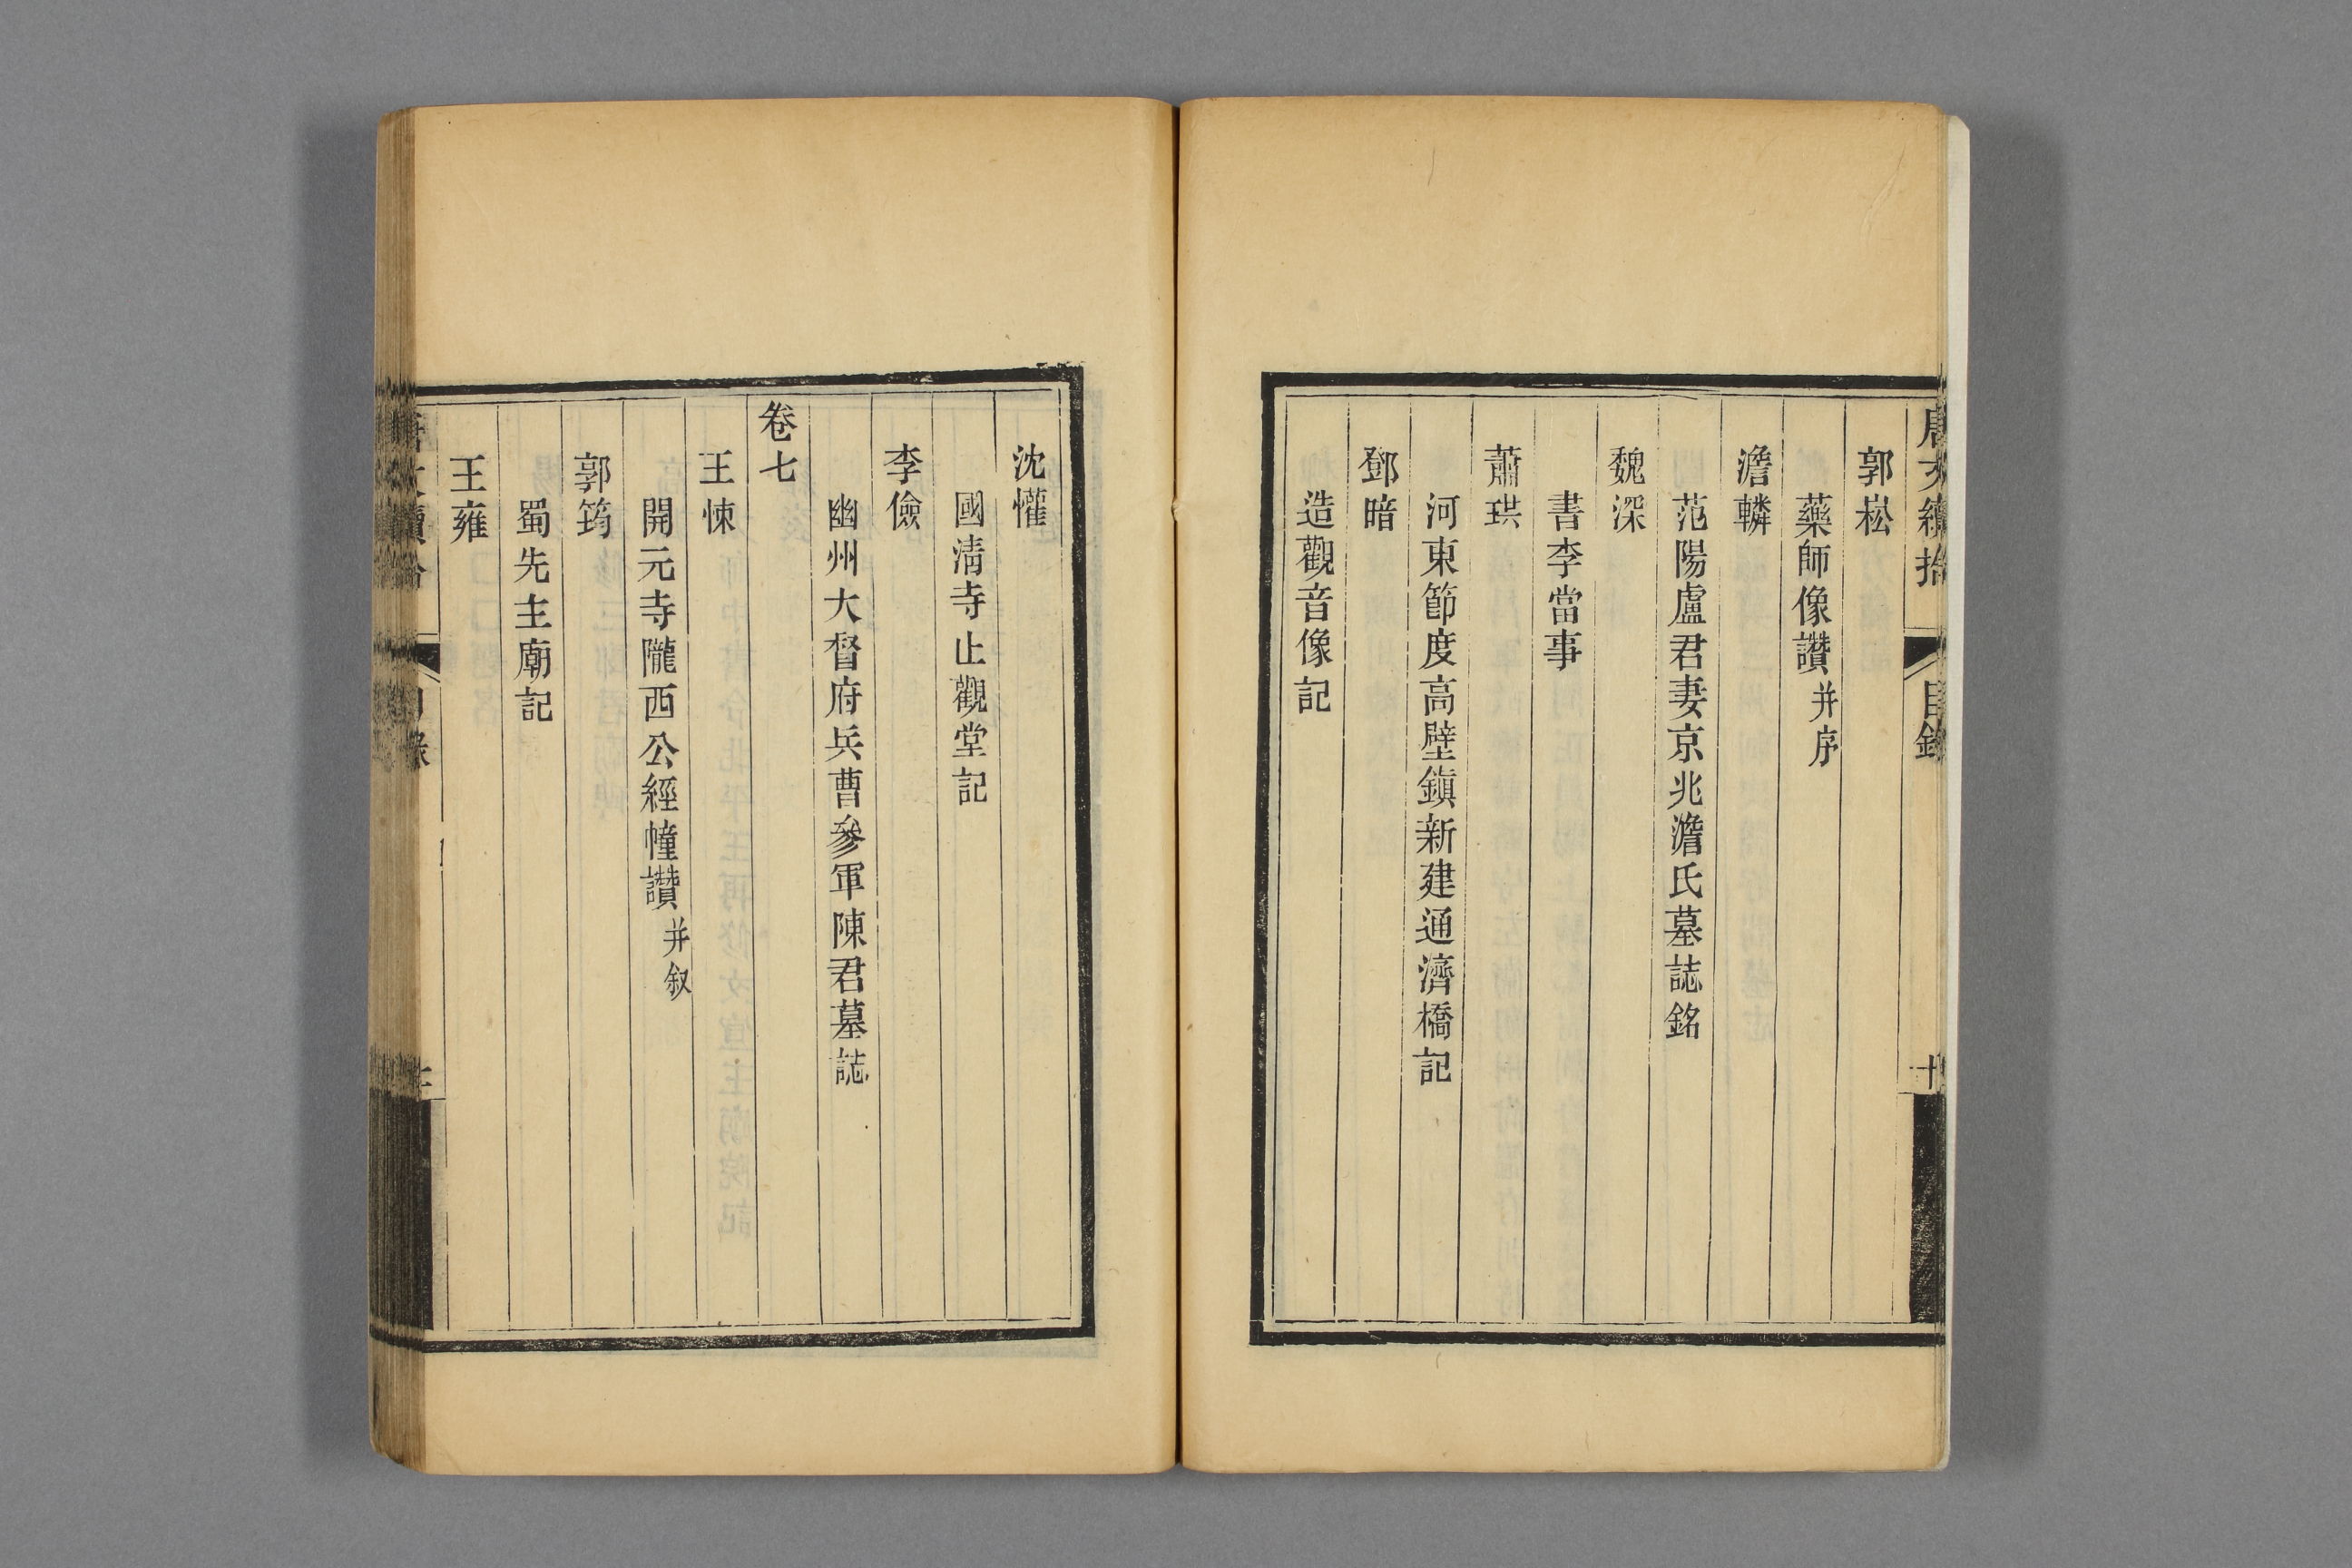 唐文續拾
目錄
十
郭崧
藥師像讚并序
澹轔
范陽盧君妻京兆澹氏墓誌銘
魏深
書李當事
蕭珙
河東節度高壁鎭新建通濟橋記
鄧暗
造觀音像記
沈懽
國淸寺止觀堂記
李儉
幽州大督府兵曹參軍陳君墓誌
卷七
王悚
開元寺隴西公經幢讚并叙
郭筠
蜀先主廟記
王雍